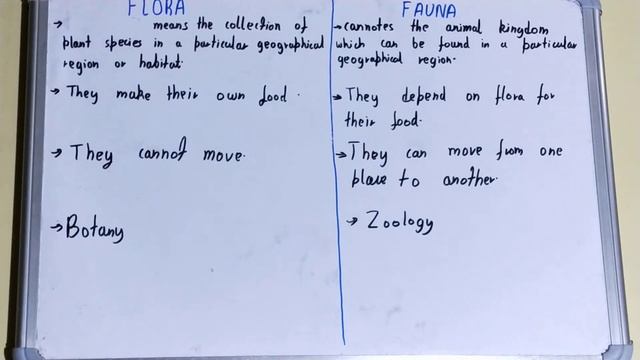 FLORA
→ means the collection of
plant species in a particular geographical
region or habitat.
→ They make their own food.
→ They cannot move.
→ Botany
FAUNA
→ cannotes the animal kingdom
which can be found in a particular
geographical region.
→ They depend on flora for
their food.
→ They can move from one
place to another.
→ Zoology